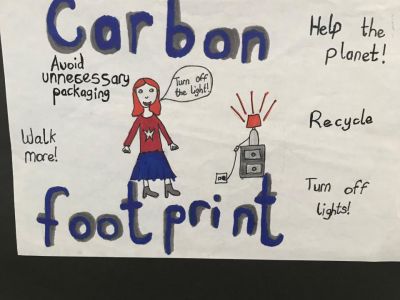 Carbon
Help the
planet!
Avoid
unnecessary
packaging
Turn off
the light!
Recycle
Walk
more!
Turn off
lights!
footprint